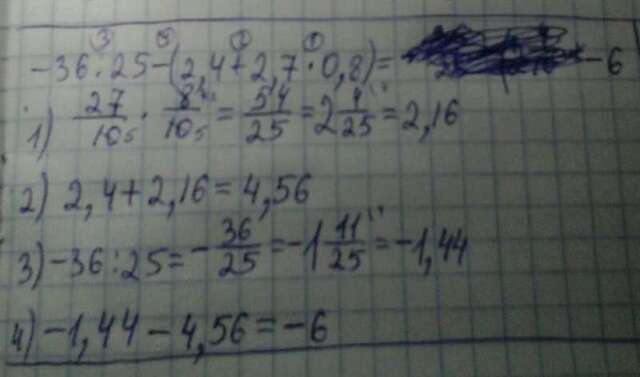 ③ ④ ② ①
-36:25-(2,4+2,7·0,8)= -6
1) 27/10₅ · 8⁴/10₅ = 54/25 = 2 4/25 = 2,16
2) 2,4+2,16=4,56
3) -36:25=-36/25=-1 11/25=-1,44
4) -1,44-4,56=-6